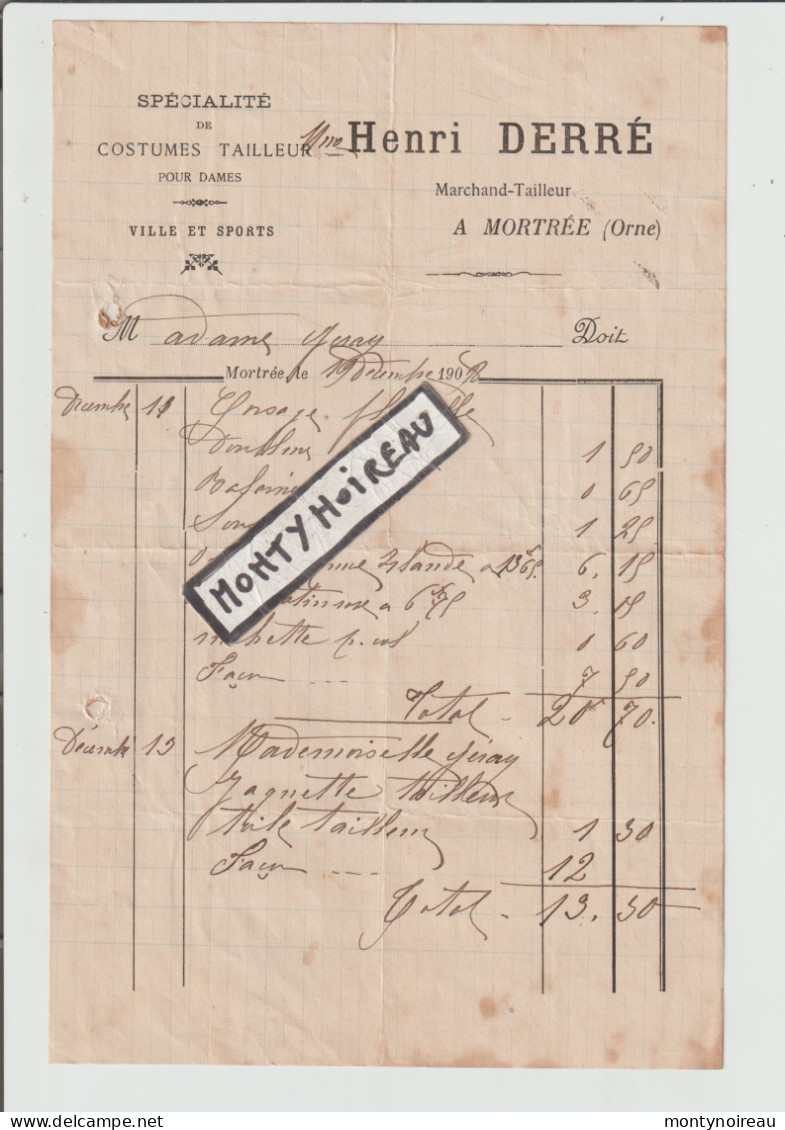 SPÉCIALITÉ
DE
COSTUMES TAILLEUR
POUR DAMES
VILLE ET SPORTS
Mme Henri DERRÉ
Marchand-Tailleur
A MORTRÉE (Orne)
Madame Doit
Mortrée, le 19 Décembre 1908
Décembre 11 Corsage
Doublure 1 50
0 65
1 25
à 13f65 6. 15
à 6f75 3. 15
p. col 0 60
Façon --- 7 50
Total - 20f 70.
Décembre 15 Mademoiselle
Jaquette tailleur
toile tailleur 1 30
Façon --- 12
Total - 13. 30
MONTY NOIREAU
delcampe.net
montynoireau